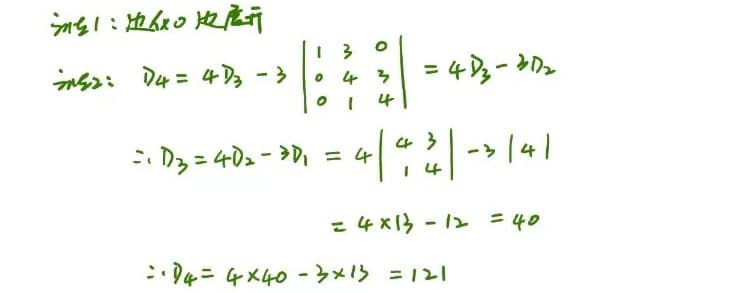 法1：边化0边展开
法2： D₄ = 4D₃ - 3 | 1 3 0 ; 0 4 3 ; 0 1 4 | = 4D₃ - 3D₂
∴ D₃ = 4D₂ - 3D₁ = 4 | 4 3 ; 1 4 | - 3 |4|
= 4×13 - 12 = 40
∴ D₄ = 4×40 - 3×13 = 121